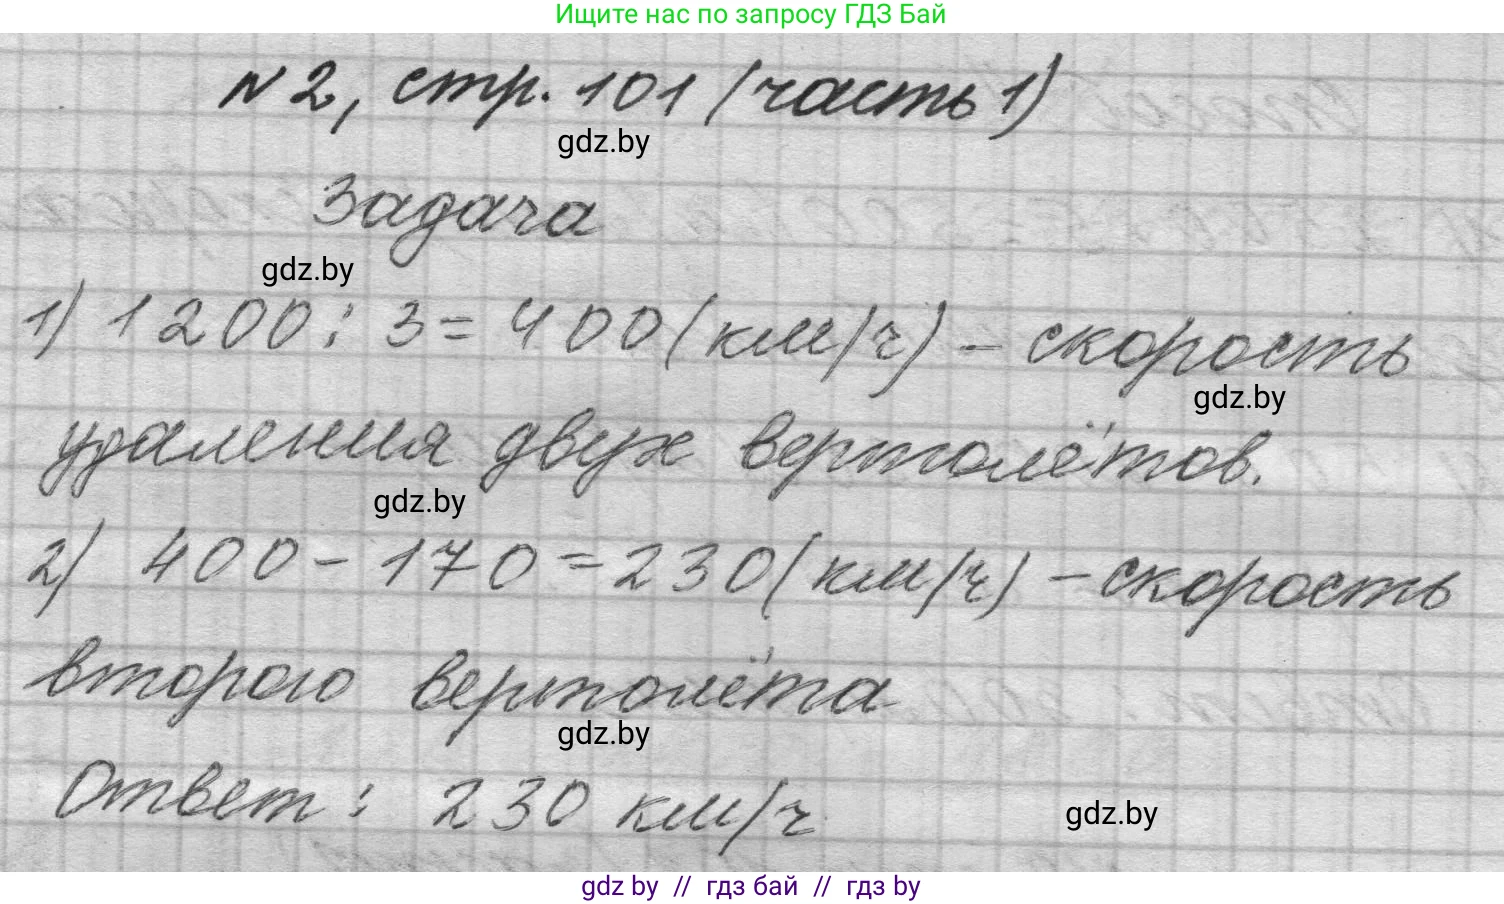 Ищите нас по запросу ГДЗ Бай
№2, стр. 101 (часть 1)
gdz.by
Задача
gdz.by
1) 1200 : 3 = 400 (км/ч) - скорость
gdz.by
удаления двух вертолётов.
gdz.by
2) 400 - 170 = 230 (км/ч) - скорость
второго вертолёта
gdz.by
Ответ : 230 км/ч
gdz.by
gdz by // гдз бай // гдз by